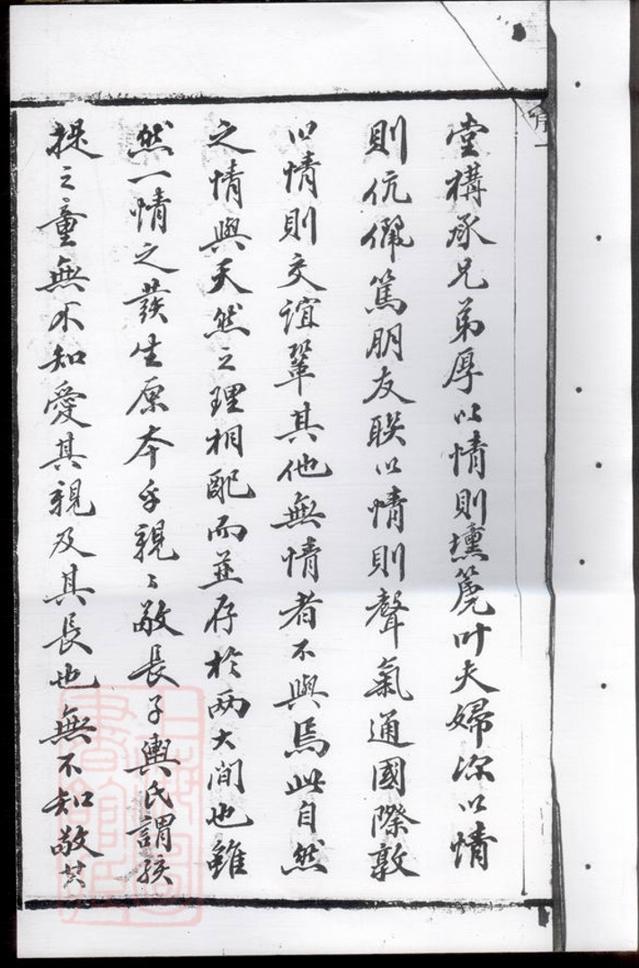 堂構承兄弟厚以情則壎箎叶夫婦深以情
則伉儷篤朋友聯以情則聲氣通國際敦
以情則交誼鞏其他無情者不與焉此自然
之情與天然之理相配而並存於两大間也雖
然一情之發生原本乎親〻敬長子輿氏謂孩
提之童無不知愛其親及其長也無不知敬其